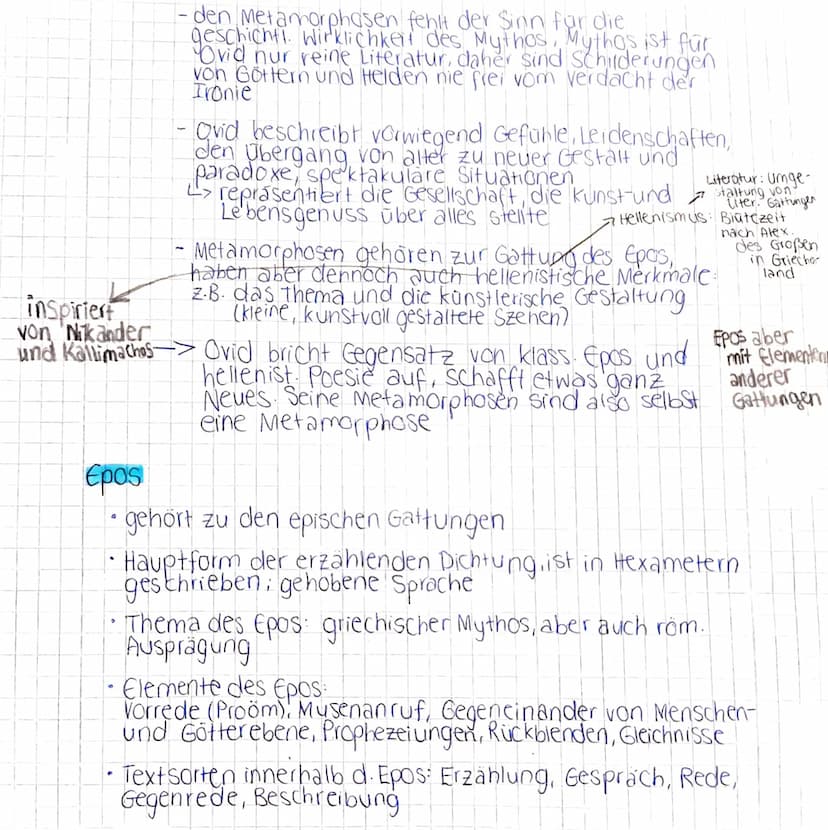 - den Metamorphosen fehlt der Sinn für die
geschichtl. Wirklichkeit des Mythos, Mythos ist für
Ovid nur reine Literatur, daher sind Schilderungen
von Göttern und Helden nie frei vom Verdacht der
Ironie
- Ovid beschreibt vorwiegend Gefühle, Leidenschaften,
den Übergang von alter zu neuer Gestalt und
paradoxe, spektakuläre Situationen
↳ repräsentiert die Gesellschaft, die Kunst- und
Lebensgenuss über alles stellte
Literatur: Umge-
staltung von
liter. Gattungen
→ Hellenismus: Blütezeit
nach Alex.
des Großen
in Griechen-
land
- Metamorphosen gehören zur Gattung des Epos,
haben aber dennoch auch hellenistische Merkmale:
z.B. das Thema und die künstlerische Gestaltung
(kleine, kunstvoll gestaltete Szenen)
inspiriert
von Nikander
und Kallimachos
→ Ovid bricht Gegensatz von klass. Epos und
hellenist. Poesie auf, schafft etwas ganz
Neues. Seine Metamorphosen sind also selbst
eine Metamorphose
Epos aber
mit Elementen
anderer
Gattungen
Epos
• gehört zu den epischen Gattungen
• Hauptform der erzählenden Dichtung, ist in Hexametern
geschrieben; gehobene Sprache
• Thema des Epos: griechischer Mythos, aber auch röm.
Ausprägung
• Elemente des Epos:
Vorrede (Proöm), Musenanruf, Gegeneinander von Menschen-
und Götterebene, Prophezeiungen, Rückblenden, Gleichnisse
• Textsorten innerhalb d. Epos: Erzählung, Gespräch, Rede,
Gegenrede, Beschreibung